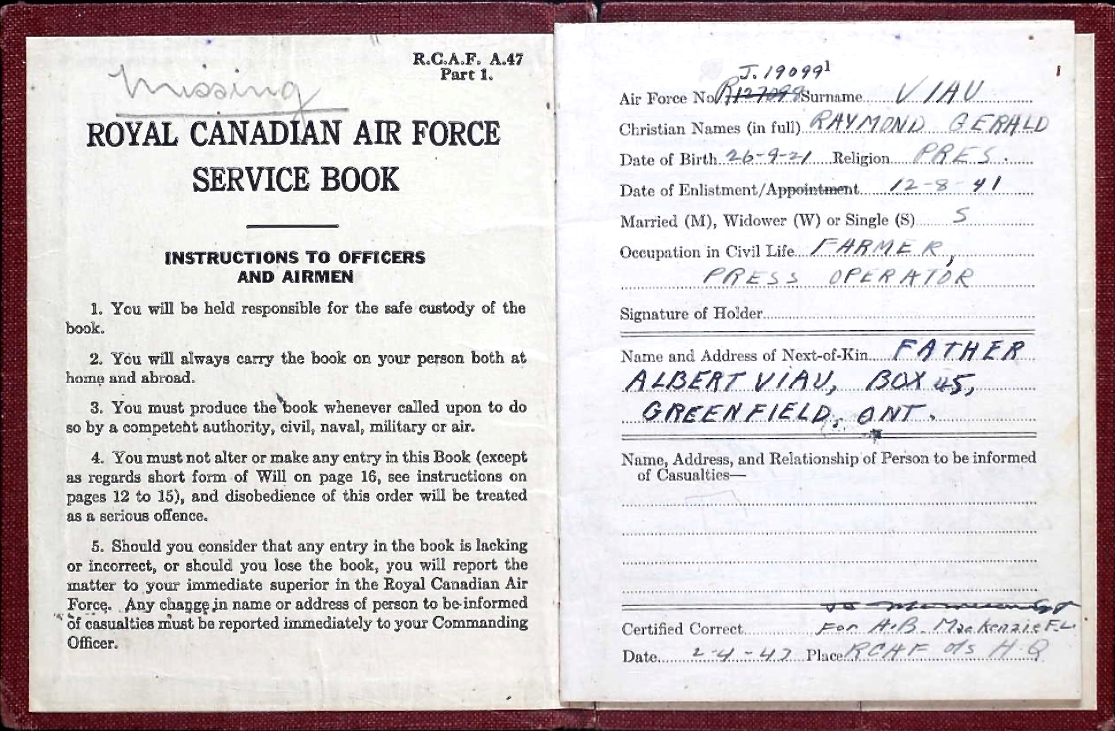 Missing
R.C.A.F. A.47
Part 1.
ROYAL CANADIAN AIR FORCE
SERVICE BOOK
INSTRUCTIONS TO OFFICERS
AND AIRMEN
1. You will be held responsible for the safe custody of the
book.
2. You will always carry the book on your person both at
home and abroad.
3. You must produce the book whenever called upon to do
so by a competent authority, civil, naval, military or air.
4. You must not alter or make any entry in this Book (except
as regards short form of Will on page 16, see instructions on
pages 12 to 15), and disobedience of this order will be treated
as a serious offence.
5. Should you consider that any entry in the book is lacking
or incorrect, or should you lose the book, you will report the
matter to your immediate superior in the Royal Canadian Air
Force. Any change in name or address of person to be informed
of casualties must be reported immediately to your Commanding
Officer.
J.19099
Air Force No. R127099 Surname VIAU
Christian Names (in full) RAYMOND GERALD
Date of Birth 26-9-21 Religion PRES.
Date of Enlistment/Appointment 12-8-41
Married (M), Widower (W) or Single (S) S
Occupation in Civil Life FARMER,
PRESS OPERATOR
Signature of Holder
Name and Address of Next-of-Kin FATHER
ALBERT VIAU, BOX 45,
GREENFIELD, ONT.
Name, Address, and Relationship of Person to be informed
of Casualties—
Certified Correct For A.B. MacKenzie F.L.
Date 2-4-43 Place RCAF O/S H.Q